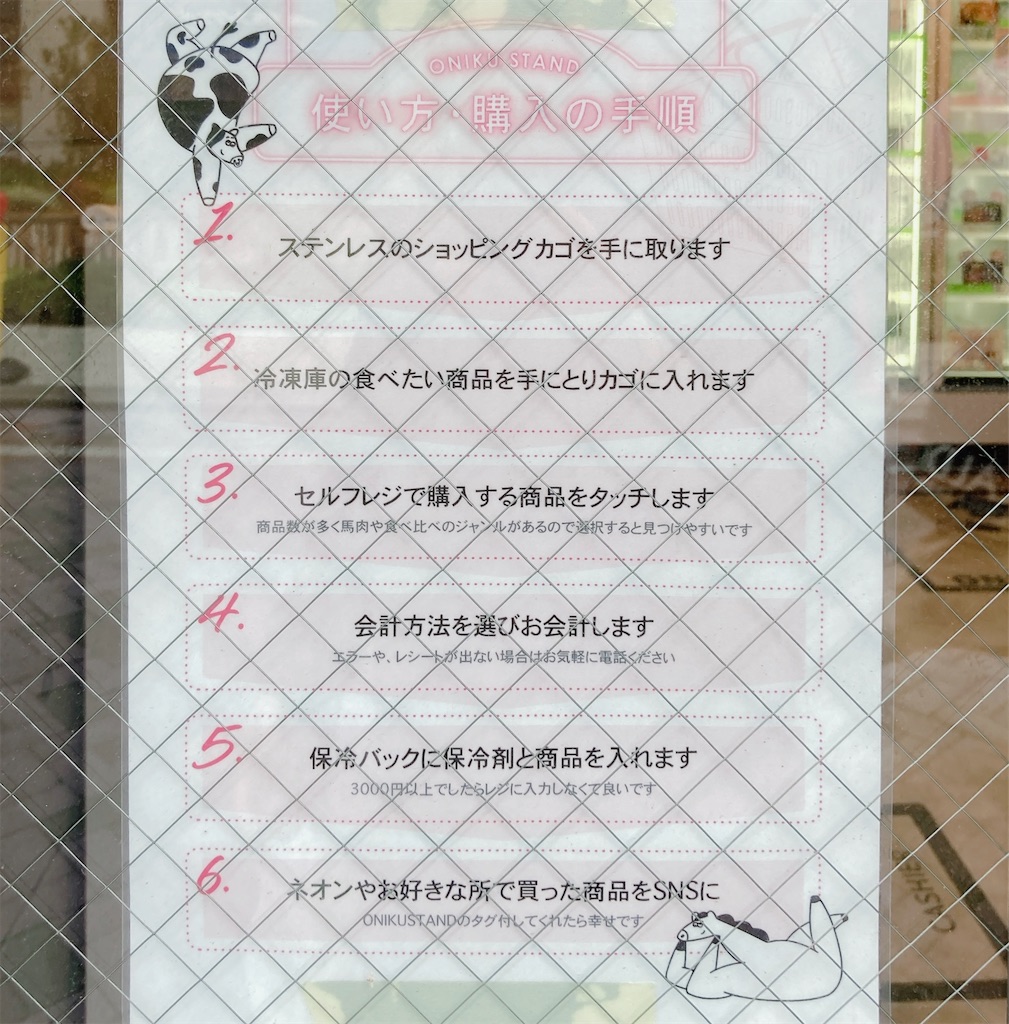 ONIKU STAND
使い方・購入の手順
1.
ステンレスのショッピングカゴを手に取ります
2.
冷凍庫の食べたい商品を手にとりカゴに入れます
3.
セルフレジで購入する商品をタッチします
商品数が多く馬肉や食べ比べのジャンルがあるので選択すると見つけやすいです
4.
会計方法を選びお会計します
エラーや、レシートが出ない場合はお気軽に電話ください
5.
保冷バックに保冷剤と商品を入れます
3000円以上でしたらレジに入力しなくて良いです
6.
ネオンやお好きな所で買った商品をSNSに
ONIKUSTANDのタグ付してくれたら幸せです